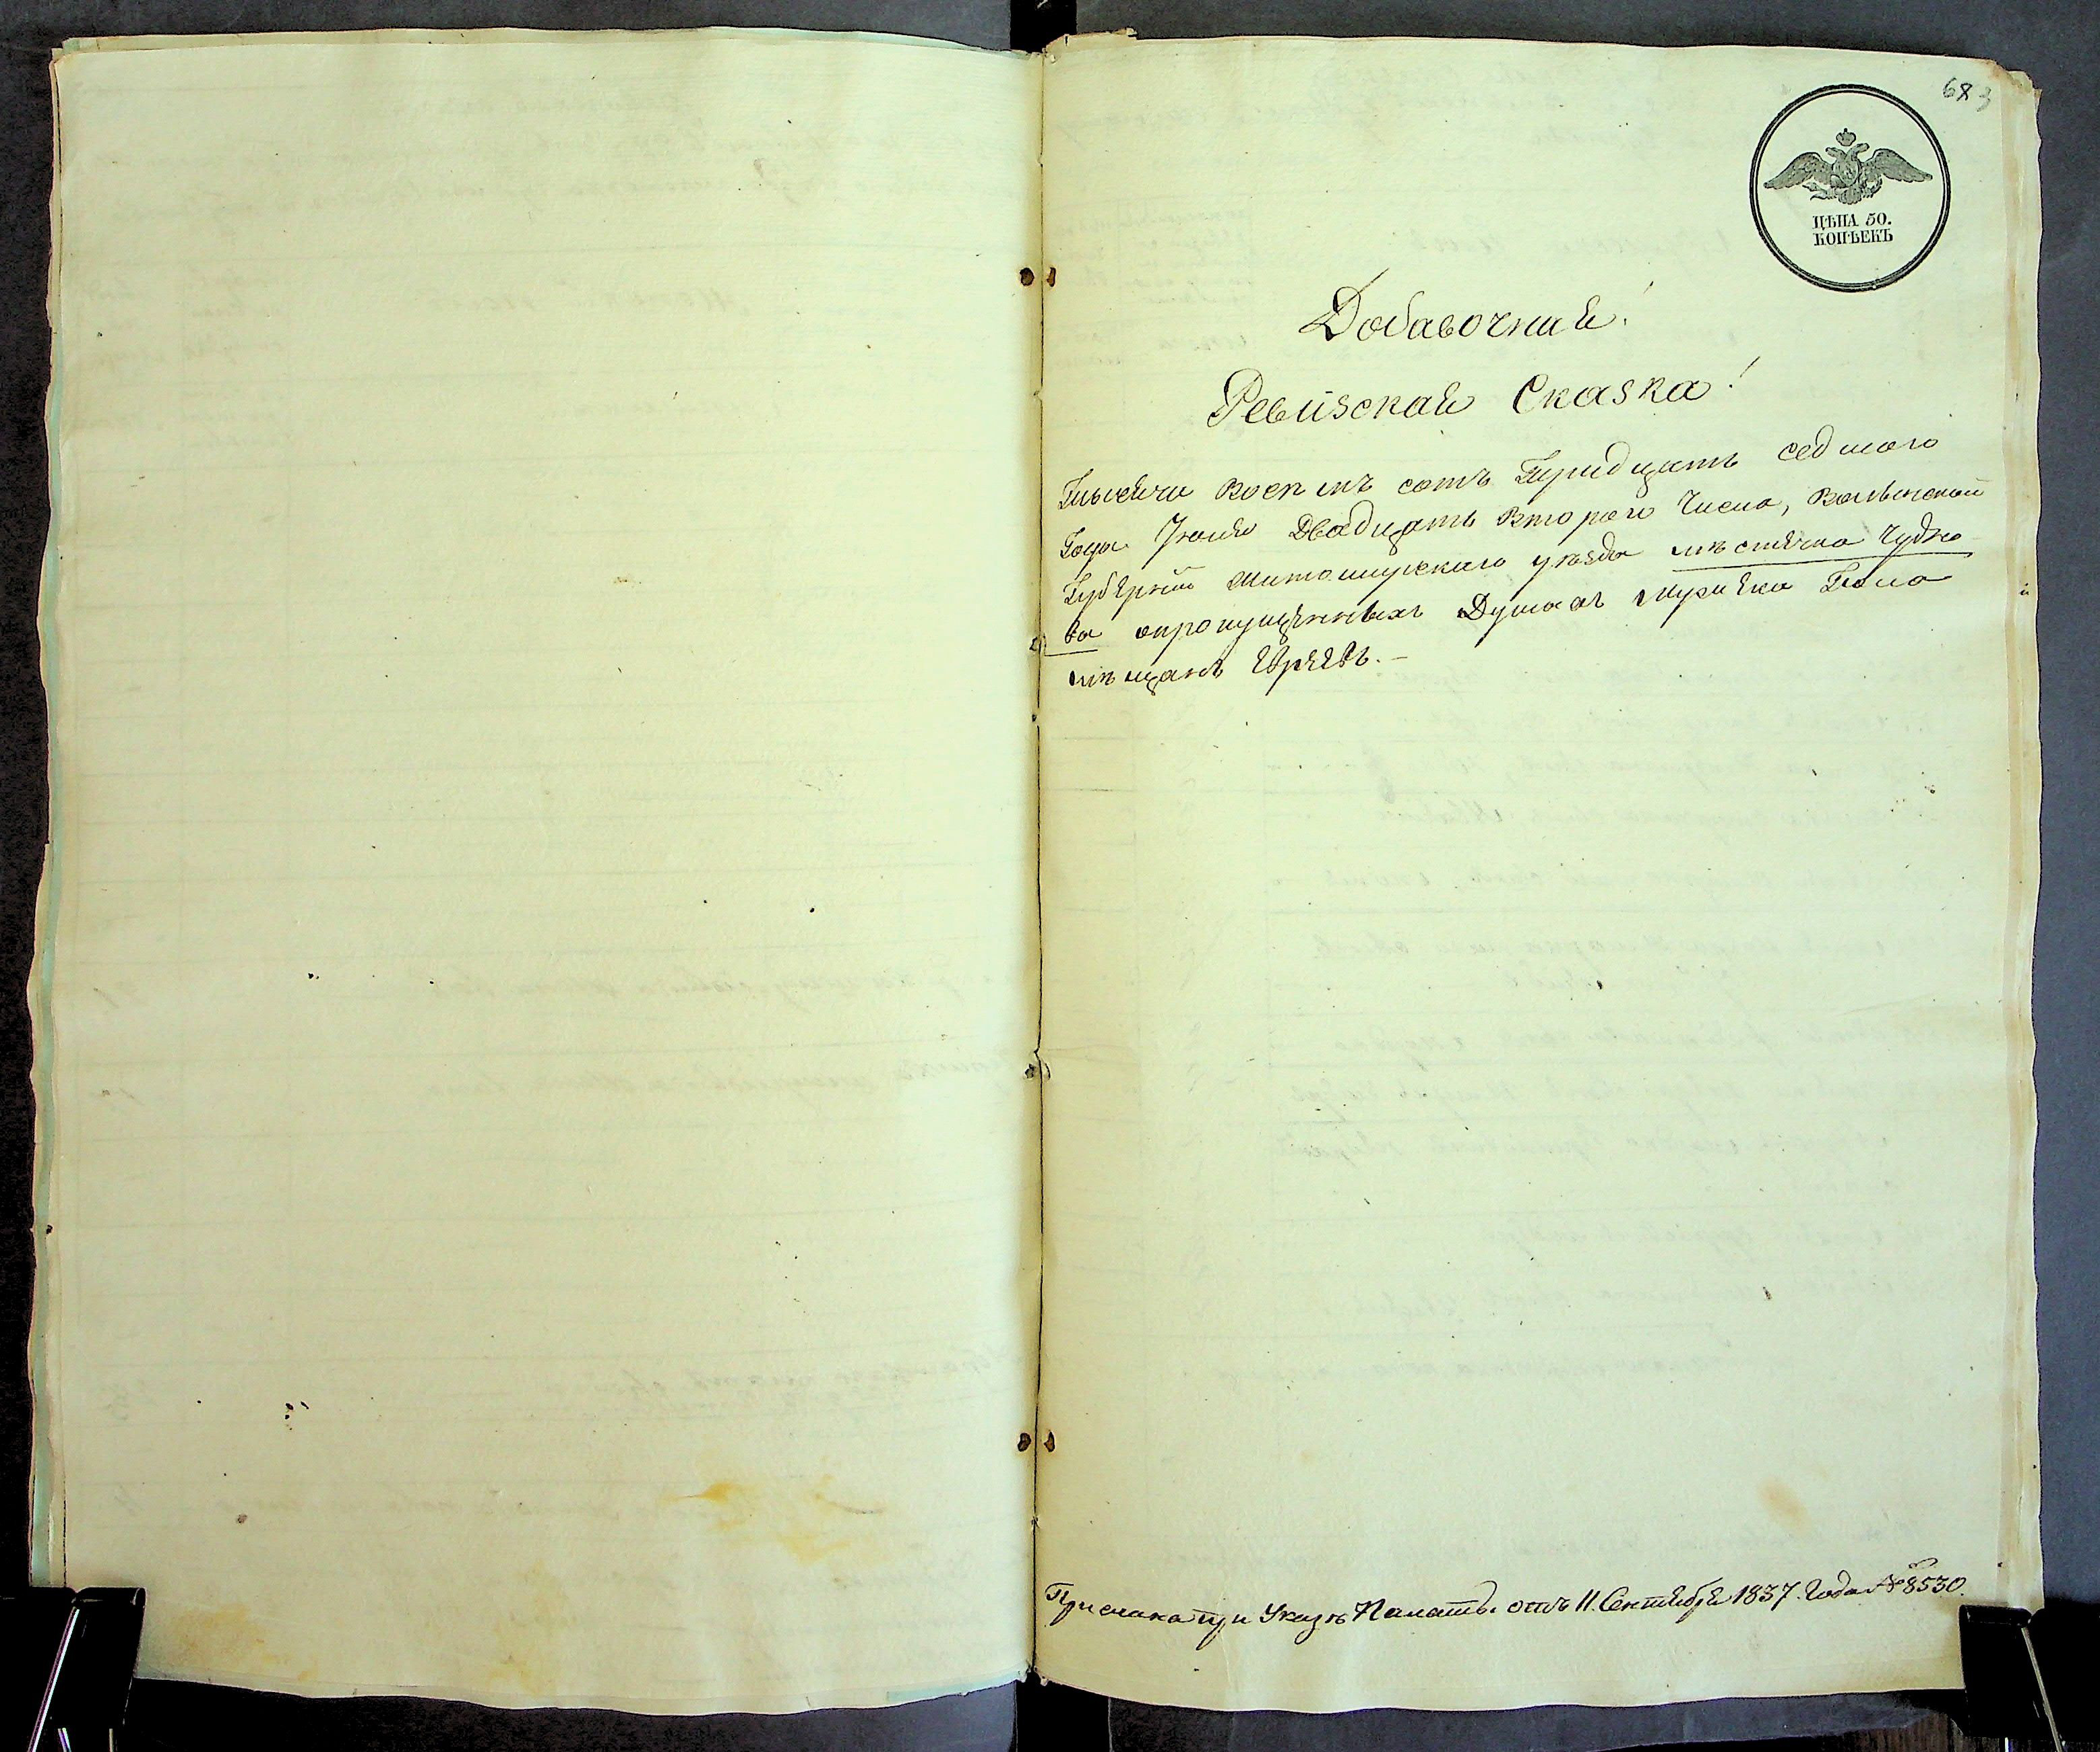 683
ЦѢНА 50.
КОПѢЕКЪ
Добавочная!
Ревизская Сказка!
Тысяча восемъ сотъ Тридцать седмого
Года Июня Двадцать Второго Числа, Волынской
Губерніи Житомирскаго уѣзда мѣстечка Чудно
ва опропущенныхъ Душахъ мужека Пола
мѣщанъ Евреевъ.-
Прислана при Указѣ Палаты отъ 11. Сентября 1837. Года № 8530.